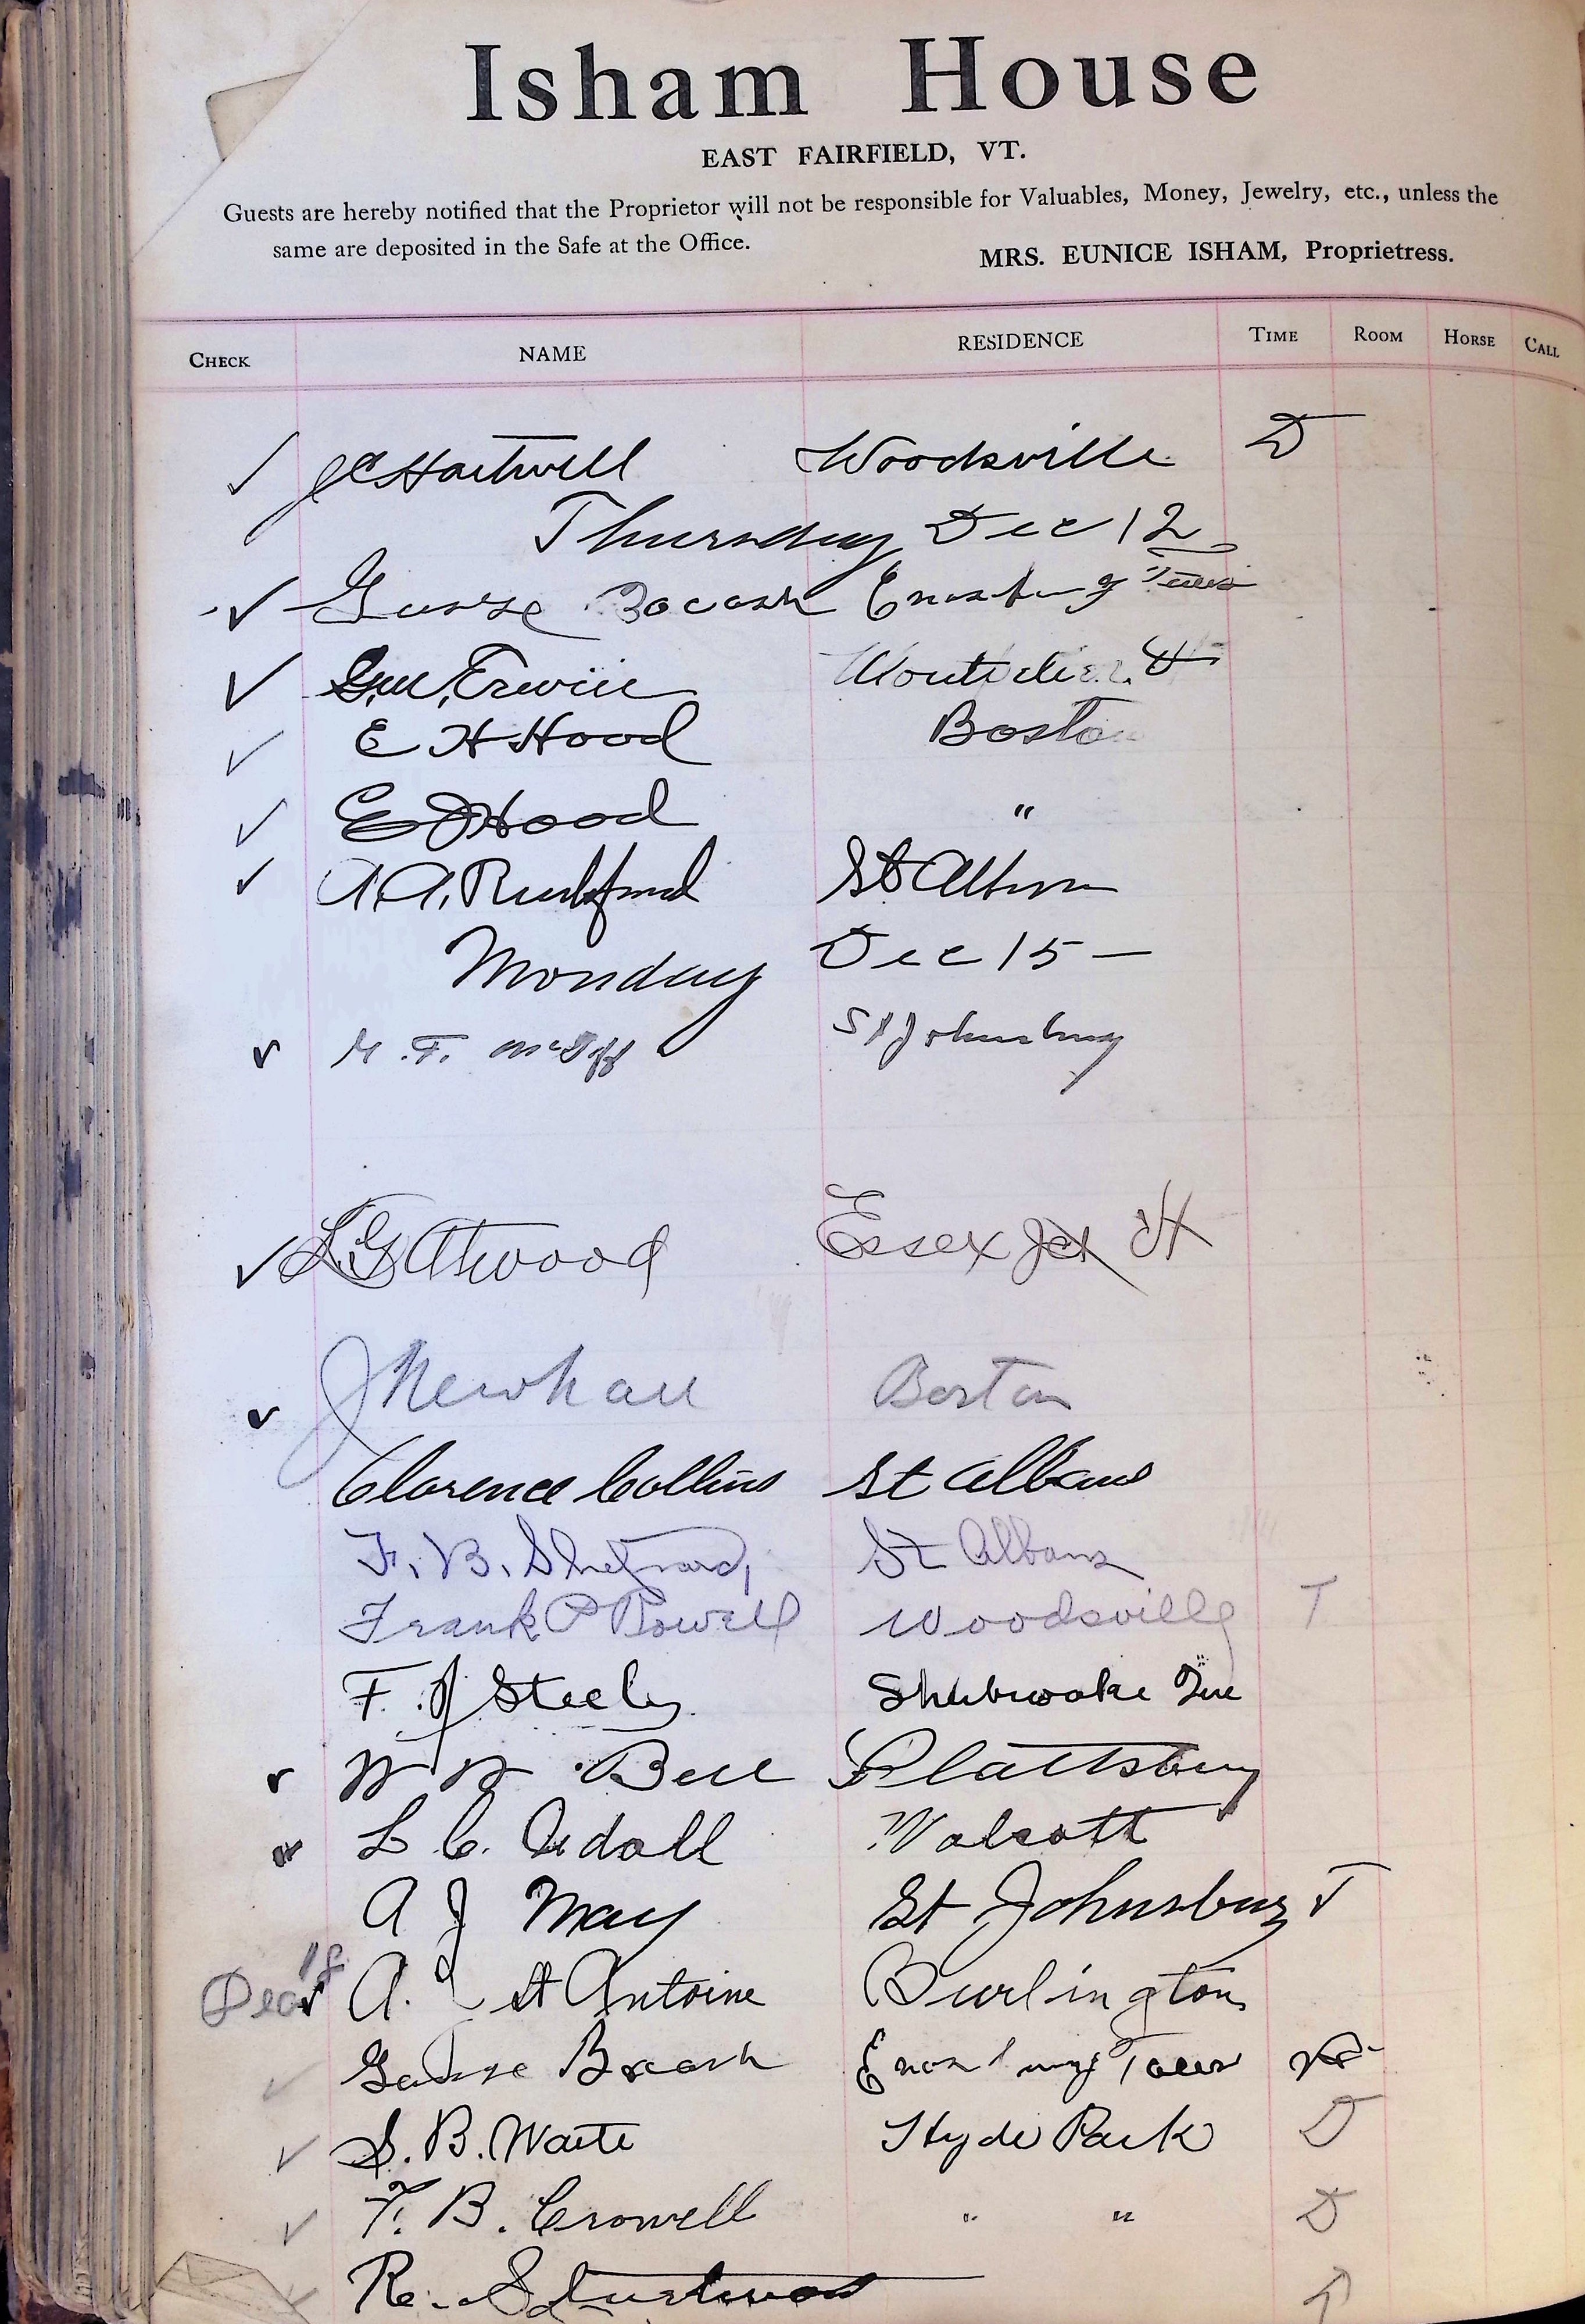 Isham House
EAST FAIRFIELD, VT.
Guests are hereby notified that the Proprietor will not be responsible for Valuables, Money, Jewelry, etc., unless the
same are deposited in the Safe at the Office.
MRS. EUNICE ISHAM, Proprietress.
CHECK NAME RESIDENCE TIME ROOM HORSE CALL
✓ J C Hartwell Woodsville D
Thursday Dec 12
✓ Enosburg
✓ G.W. Erwin Montpelier
✓ E H Hood Boston
✓ E J Hood "
✓ A.A. St Albans
Monday Dec 15 —
✓ F. St Johnsbury
✓ L G Atwood Essex Jct
✓ J Newhall Boston
Clarence Collins St Albans
F. B. Shepard, St Albans
Frank P Powell Woodsville T
F. J Steele Que
✓ Bell Plattsburg
L. C. Udall Wolcott
A J May St Johnsbury T
Dec 18
✓ A. J St Antoine Burlington
✓ Enosburg
✓ S. B. Waite Hyde Park D
✓ F. B. Crowell " " D